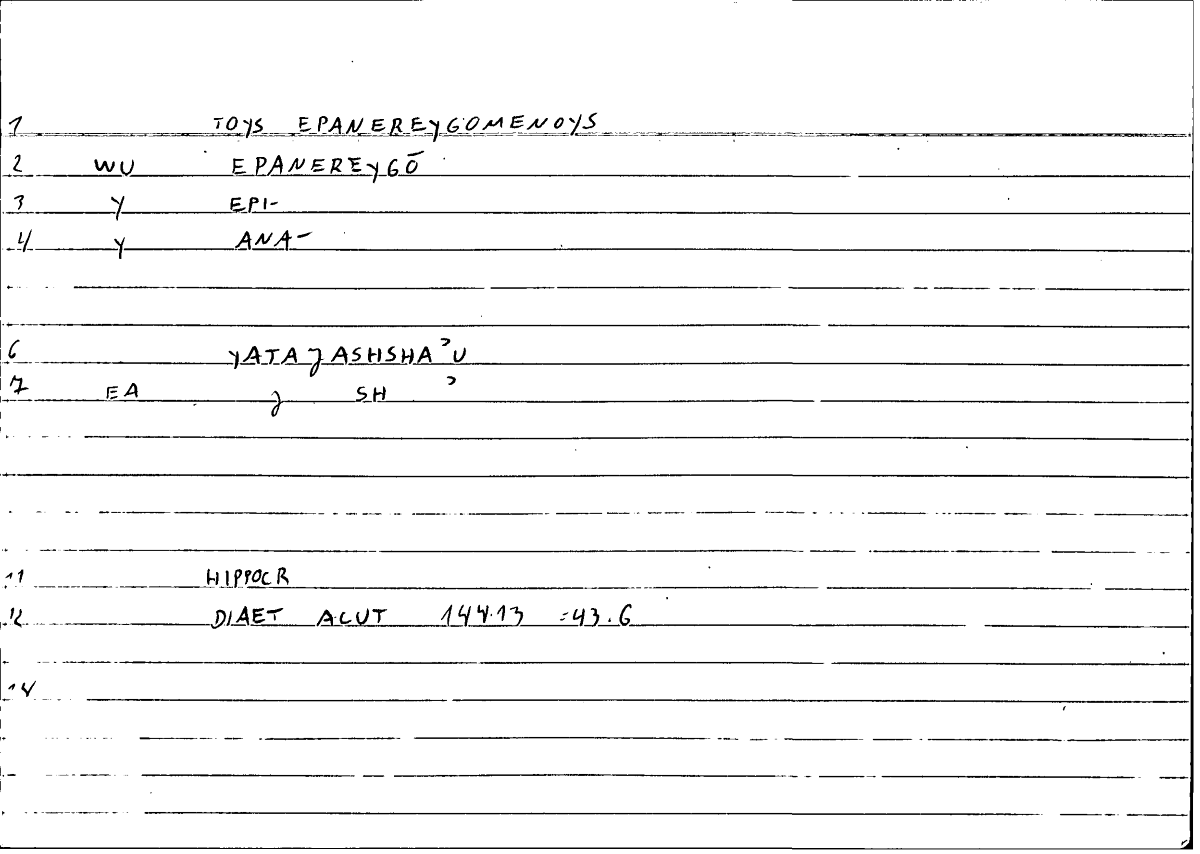 1 TOYS EPANEREYGOMENOYS
2 WU EPANEREYGŌ
3 Y EPI-
4 Y ANA-
6 YATAJASHSHAʾU
7 EA J SH ʾ
11 HIPPOCR
12 DIAET ACUT 144.13 =43.6
14